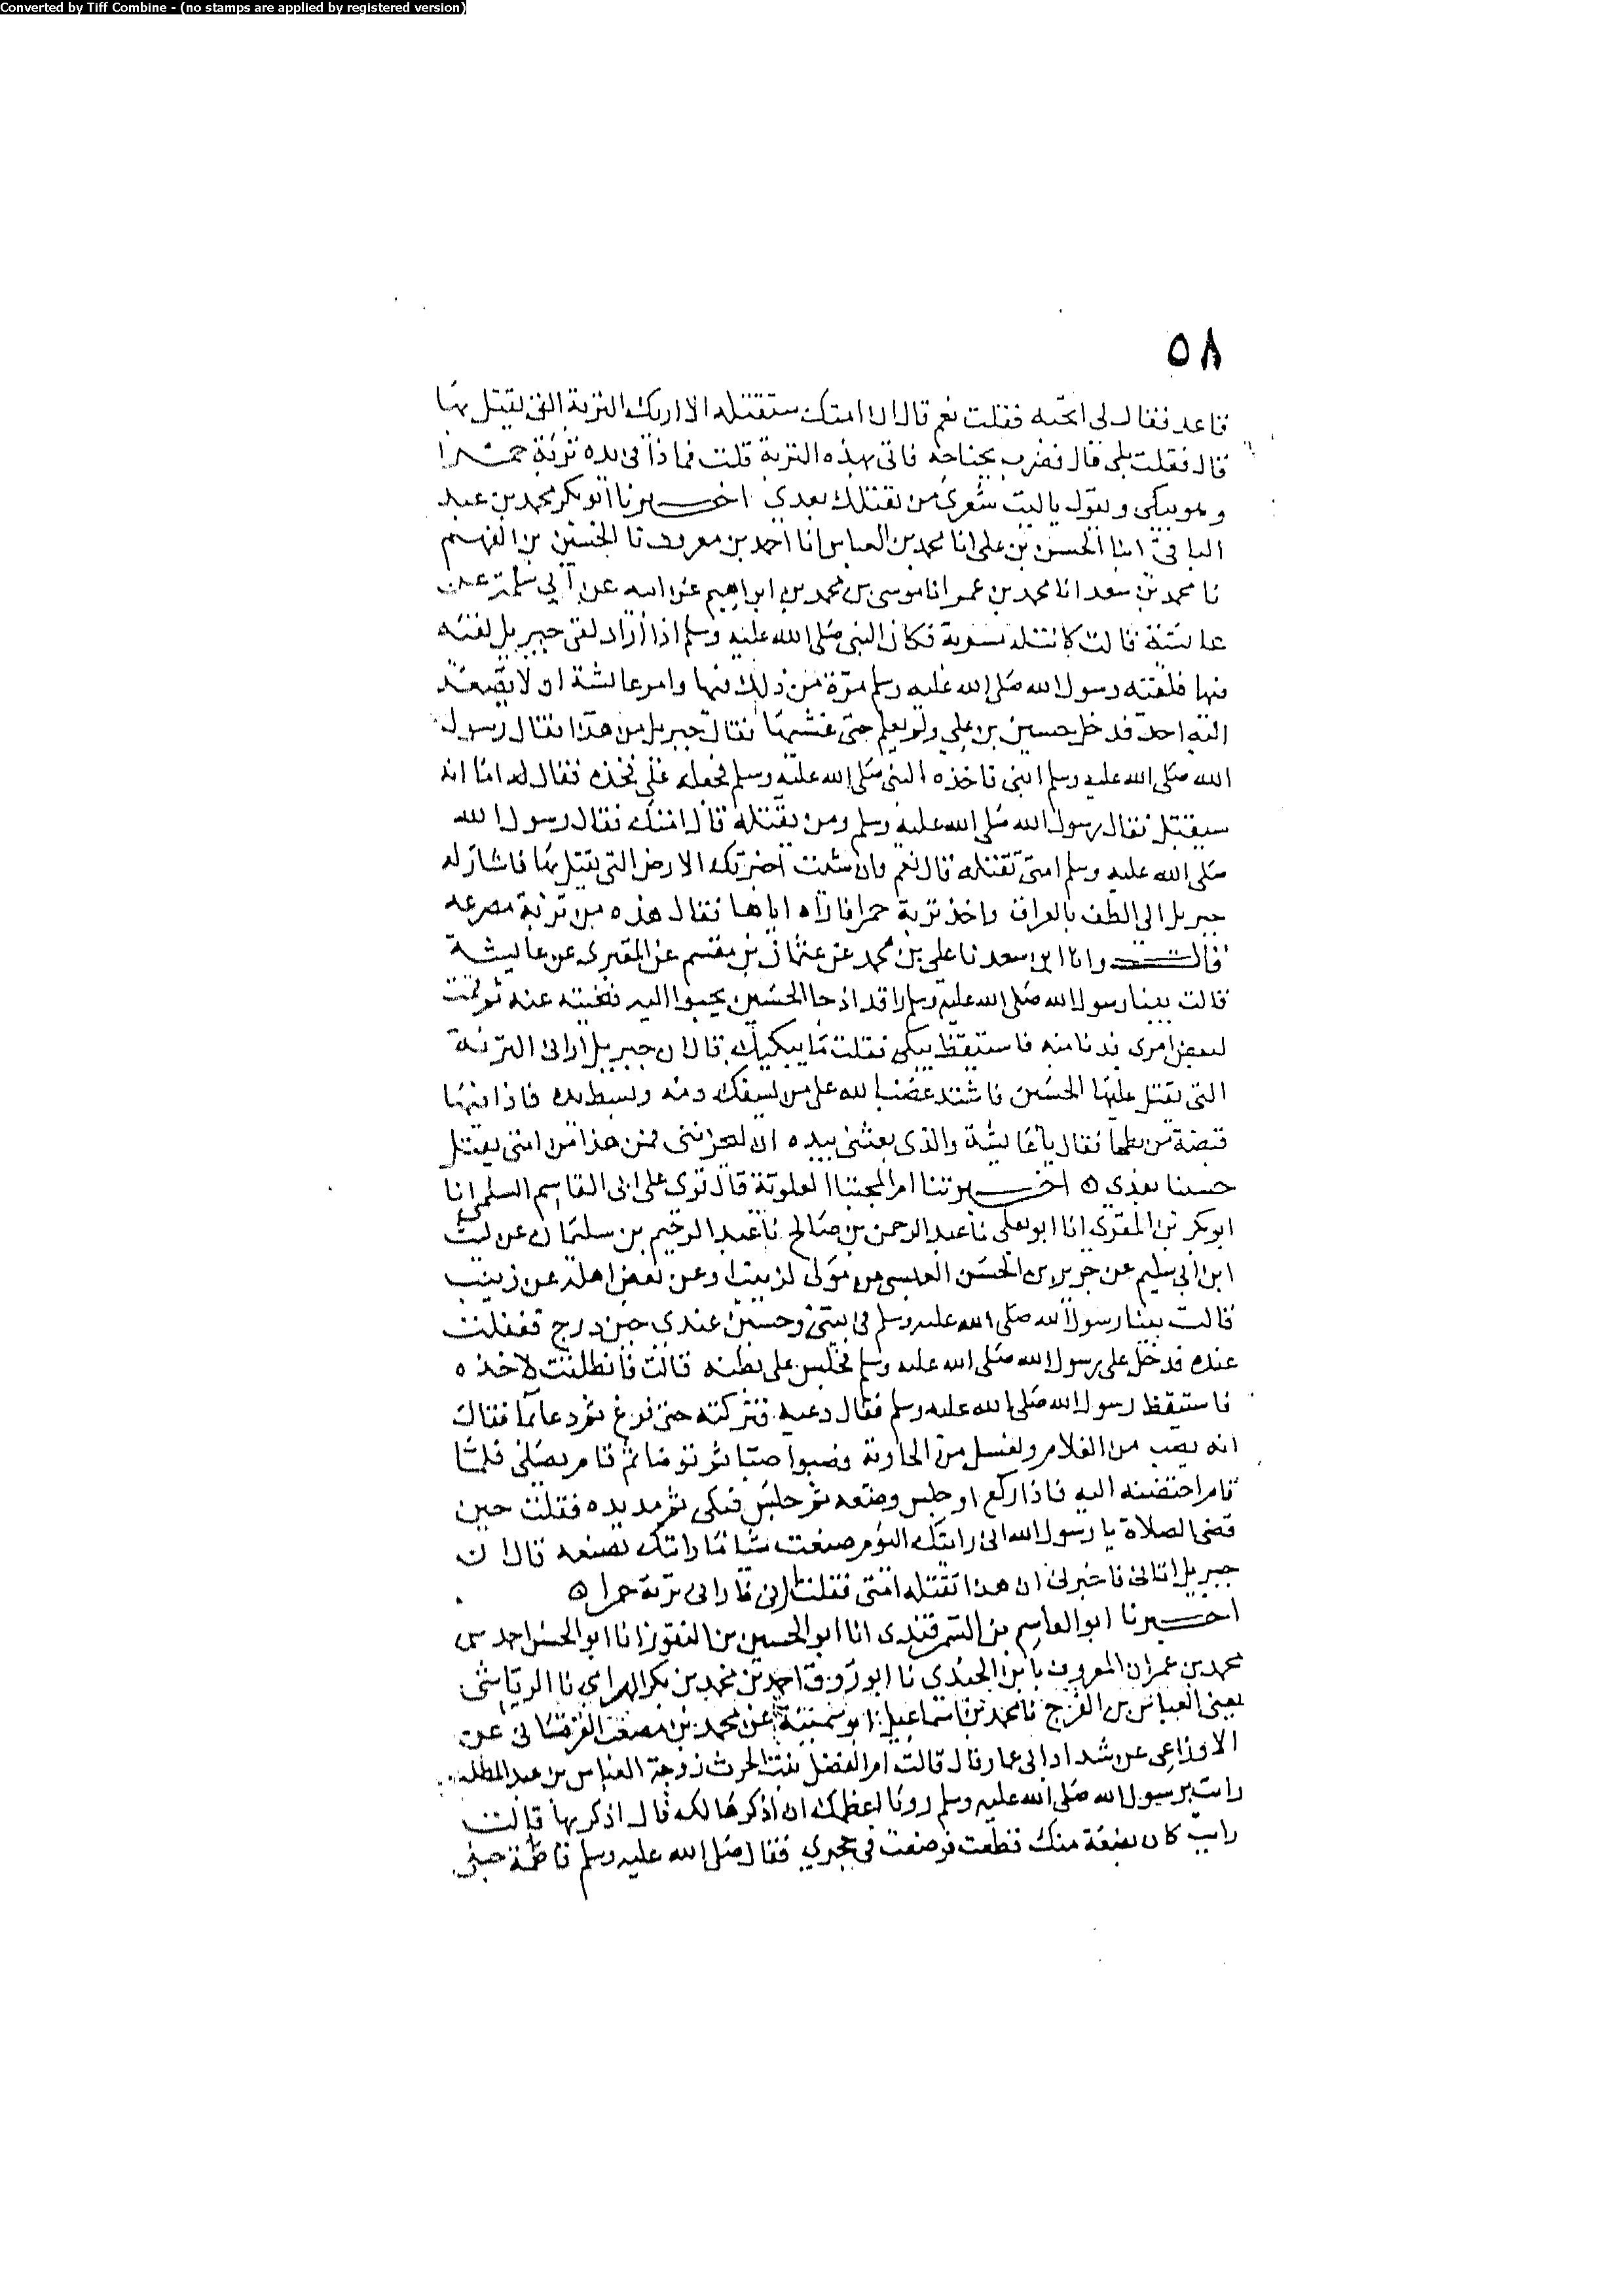 Converted by Tiff Combine - (no stamps are applied by registered version)
٥٨
قاعد فقال لى اتحبه فقلت نعم قال ان امتك ستقتله الا اريك التربة التى يقتل بها
قال فقلت بلى قال فضرب بجناحه فاتى بهذه التربة قلت فماذا فى يده تربة حمرا
وهو يبكى ويقول ياليت شعرى من يقتلك بعدي اخبرنا ابو بكر محمد بن عبد
الباقى انبا الحسن بن على انا محمد بن العباس انا احمد بن معروف نا الحسين بن الفهم
نا محمد بن سعد انا محمد بن عمر انا موسى بن محمد بن ابراهيم عن ابيه عن ابي سلمة عن
عائشة قالت كانت له مشربة فكان النبى صلى الله عليه وسلم اذا اراد لقى جبريل لقيه
فيها فلقيه رسول الله صلى الله عليه وسلم مرة من ذلك فيها وامر عائشة ان لا يصعد
اليه احد فدخل حسين بن علي ولم يعلم حتى غشيها فقال جبريل من هذا فقال رسول
الله صلى الله عليه وسلم ابنى فاخذه النبى صلى الله عليه وسلم فجعله على فخذه فقال له اما انه
سيقتل فقال رسول الله صلى الله عليه وسلم ومن يقتله قال امتك فقال رسول الله
صلى الله عليه وسلم امتى تقتله قال نعم وان شئت اخبرتك الارض التى يقتل بها فاشار له
جبريل الى الطف بالعراق واخذ تربة حمرا فاراه اياها فقال هذه من تربة مصرعه
قالت وانا ابن سعد نا على بن محمد عن عثمان بن مقسم عن المقبرى عن عائشة
قالت بينا رسول الله صلى الله عليه وسلم راقد اذ جا الحسين يحبوا اليه فنحيته عنه ثم قمت
لبعض امرى فدنا منه فاستيقظ يبكى فقلت ما يبكيك قال ان جبريل ارانى التربة
التى يقتل عليها الحسين فاشتد غضب الله على من يسفك دمه وبسط يده فاذا فيها
قبضة من بطحا فقال يا عائشة والذى بعثنى بيده انه ليحزننى فمن هذا من امتى يقتل
حسينا بعدي ه اخبرتنا ام المجتبا العلوية قال قرى على ابى القاسم السلمى انا
ابو بكر بن المقرى انا ابو يعلى نا عبد الرحمن بن صالح نا عبد الرحيم بن سليمان عن ليث
ابن ابى سليم عن جرير بن الحسن العبسى عن مولى لزينب او عن بعض اهله عن زينب
قالت بينا رسول الله صلى الله عليه وسلم فى بيتى وحسين عندى حين درج فغفلت
عنه فدخل على رسول الله صلى الله عليه وسلم فجلس على بطنه قالت فانطلقت لاخذه
فاستيقظ رسول الله صلى الله عليه وسلم فقال دعيه فتركته حتى فرغ ثم دعا بما فقال
انه يصب من الغلام ويغسل من الجارية فصبوا صبا ثم توضا ثم قام يصلى فلما
قام احتضنه اليه فاذا ركع او جلس وضعه ثم جلس فبكى ثم مد يده فقلت حين
قضى الصلاة يا رسول الله انى رايتك اليوم صنعت شيا ما رايتك تصنعه قال ان
جبريل اتانى فاخبرنى ان هذا تقتله امتى فقلت ارنى فارانى تربة حمرا ه
اخبرنا ابو القاسم بن السمرقندى انا ابو الحسين بن النقور انا ابو الحسن احمد بن
محمد بن عمران المعروف بابن الجندى نا ابو روق احمد بن محمد بن بكر الهزاني نا الرياشى
يعنى العباس بن الفرج نا محمد بن اسماعيل ابو سمينة عن محمد بن مصعب القرقسانى عن
الاوزاعى عن شداد ابى عمار قال قالت ام الفضل بنت الحرث زوجة العباس بن عبد المطلب
رايت يرسول الله صلى الله عليه وسلم رويا اعظمك ان اذكرها لك قال اذكريها قالت
رايت كان بضعة منك قطعت فوضعت فى حجري فقال صلى الله عليه وسلم فاطمة حبلى